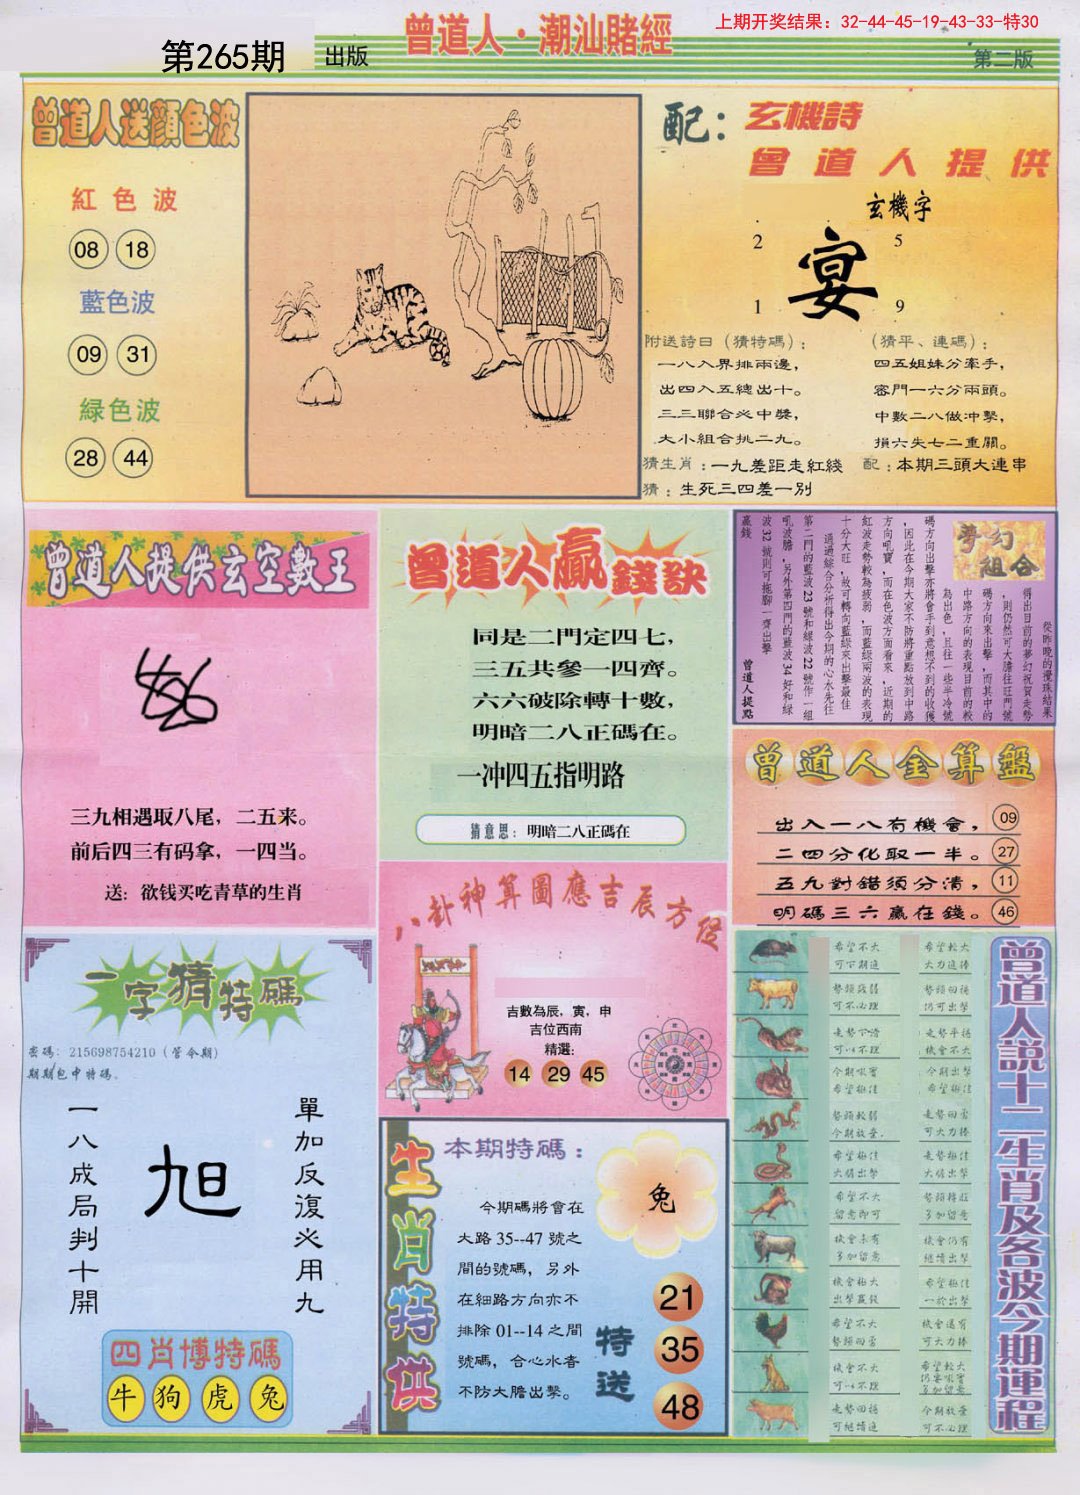 上期开奖结果：32-44-45-19-43-33-特30
曾道人·潮汕賭經
第265期
出版
第二版
曾道人送顔色波
紅色波
08 18
藍色波
09 31
緑色波
28 44
配：玄機詩
曾道人提供
玄機字
2 5
宴
1 9
附送詩曰（猜特碼）：
一八入界排兩邊，
出四入五總出十。
三三聯合必中獎，
大小組合挑二九。
（猜平、連碼）：
四五姐妹分牽手，
容門一六分兩頭。
中數二八做冲擊，
損六失七二重關。
猜生肖：一九差距走紅綫
配：本期三頭大連串
猜：生死三四差一别
曾道人提供玄空數王
三九相遇取八尾，二五来。
前后四三有码拿，一四当。
送：欲钱买吃青草的生肖
曾道人贏錢訣
同是二門定四七，
三五共參一四齊。
六六破除轉十數，
明暗二八正碼在。
一冲四五指明路
猜意思：明暗二八正碼在
夢幻組合
從昨晚的攪珠結果
得出目前的夢幻祝賀走勢
，則仍然可大膽往旺門號
碼方向來出擊，而其中的
中路方向的表現目前的較
為出色，且往一些半冷號
碼方向出擊亦將會手到意想不到的收獲
，因此在今期大家不防將重點放到中路
方向吼寶，而在色波方面看來，近期的
紅波走勢較為疲弱，而藍緑兩波的表現
十分大旺，故可轉向藍緑來出擊最佳
通過綜合分析得出今期的心水先往
第二門的藍波23號和緑波22號作一組
吼波膽，另外第四門的藍波34好和緑
波32號則可拖腳一齊出擊
贏錢
曾道人提點
曾道人金算盤
出入一八有機會，09
二四分化取一半。27
五九對錯須分清，11
明碼三六贏在錢。46
一字猜特碼
密碼：215698754210（管令期）
期期包中特碼。
一八成局判十開
旭
單加反復必用九
四肖博特碼
牛 狗 虎 兔
八卦神算圖應吉辰方位
吉數為辰，寅，申
吉位西南
精選：
14 29 45
生肖特供
本期特碼：
今期碼將會在
大路35--47號之
間的號碼，另外
在細路方向亦不
排除01--14之間
號碼，合心水者
不防大膽出擊。
兔
特送
21
35
48
曾道人説十二生肖及各波今期運程
希望不大
可下期追
希望較大
大力追捧
可不必理
仍可出擊
走勢平穩
機會不大
今期出擊
今期放棄，
走勢極佳
大膽出擊
希望不大
留意即可
機會未有
多加留意
機會仍有
繼續出擊
機會極大
出擊贏錢
希望極佳
一於出擊
希望不大
機會還有
可大力捧
機會不大
希望較大
走勢回穩
可繼續追
今期放棄
可不必理